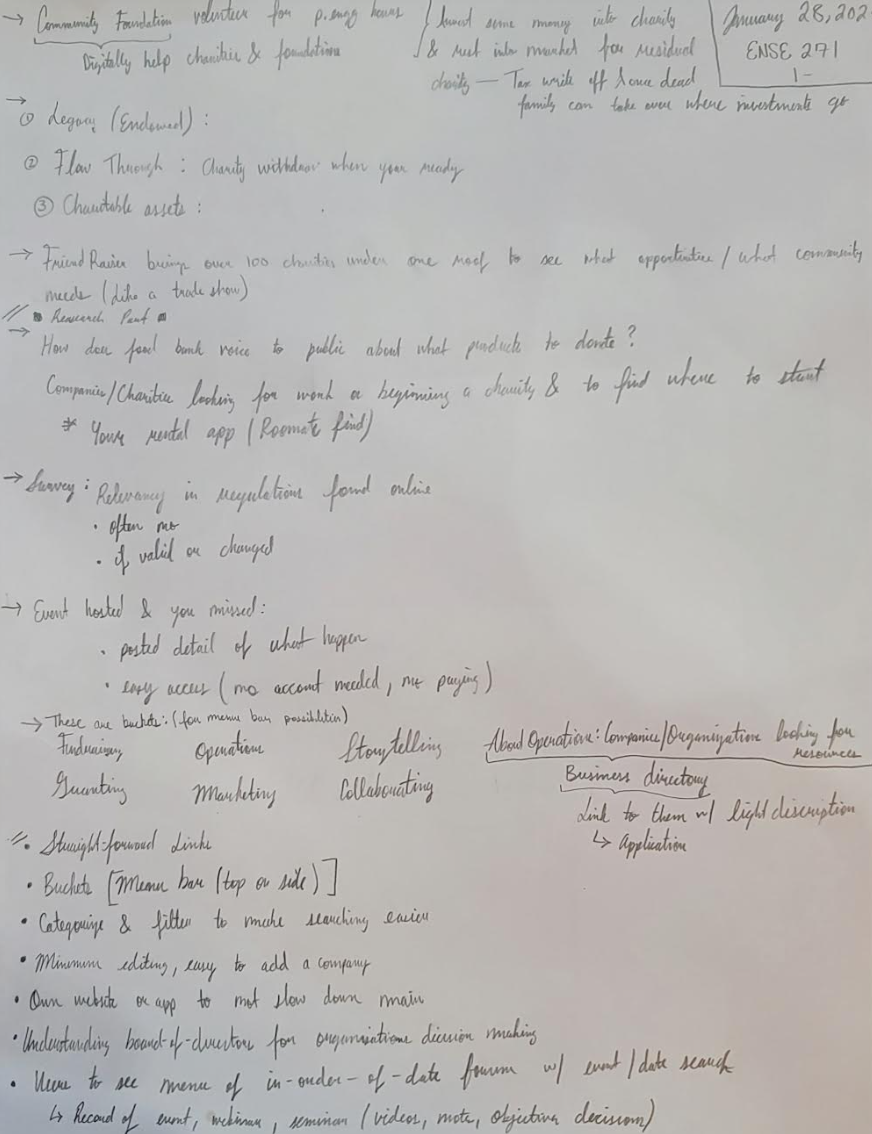 → Community Foundation volunteer for p.engg hours
Digitally help charities & foundations
Invest some money into charity
& rest into market for residual
charity — Tax write off & once dead
family can take over where investments go
January 28, 202
ENSE 271
1-
→
① Legacy (Endowed) :
② Flow Through : Charity withdraw when your ready
③ Charitable assets :
→ Friend Raiser brings over 100 charities under one roof to see what opportunities / what community
needs (Like a trade show)
// Research Part
→
How does food bank voice to public about what products to donate?
Companies/Charities looking for work or beginning a charity & to find where to start
* Youre rental app (Roomate find)
→ Survey : Relevancy in regulations found online
• often no
• if valid or changed
→ Event hosted & you missed:
• posted detail of what happen
• easy access (no account needed, no paying)
→ These are buckets: (for menu bar possibilities)
Fundraising Operations Storytelling
Granting Marketing Collaborating
About Operations: Companies/Organization looking for
resources
Business directory
Link to them w/ light discription
↳ Application
// • Straight-forward Links
• Buckets [Menu bar (top or side)]
• Categorize & filter to make searching easier
• Minimum editing, easy to add a company
• Own website or app to not slow down main
• Understanding board-of-directors for organisations decision making
• Users to see menu of in-order-of-date forum w/ event/date search
↳ Record of event, webinar, seminar (videos, note, objective decisions)